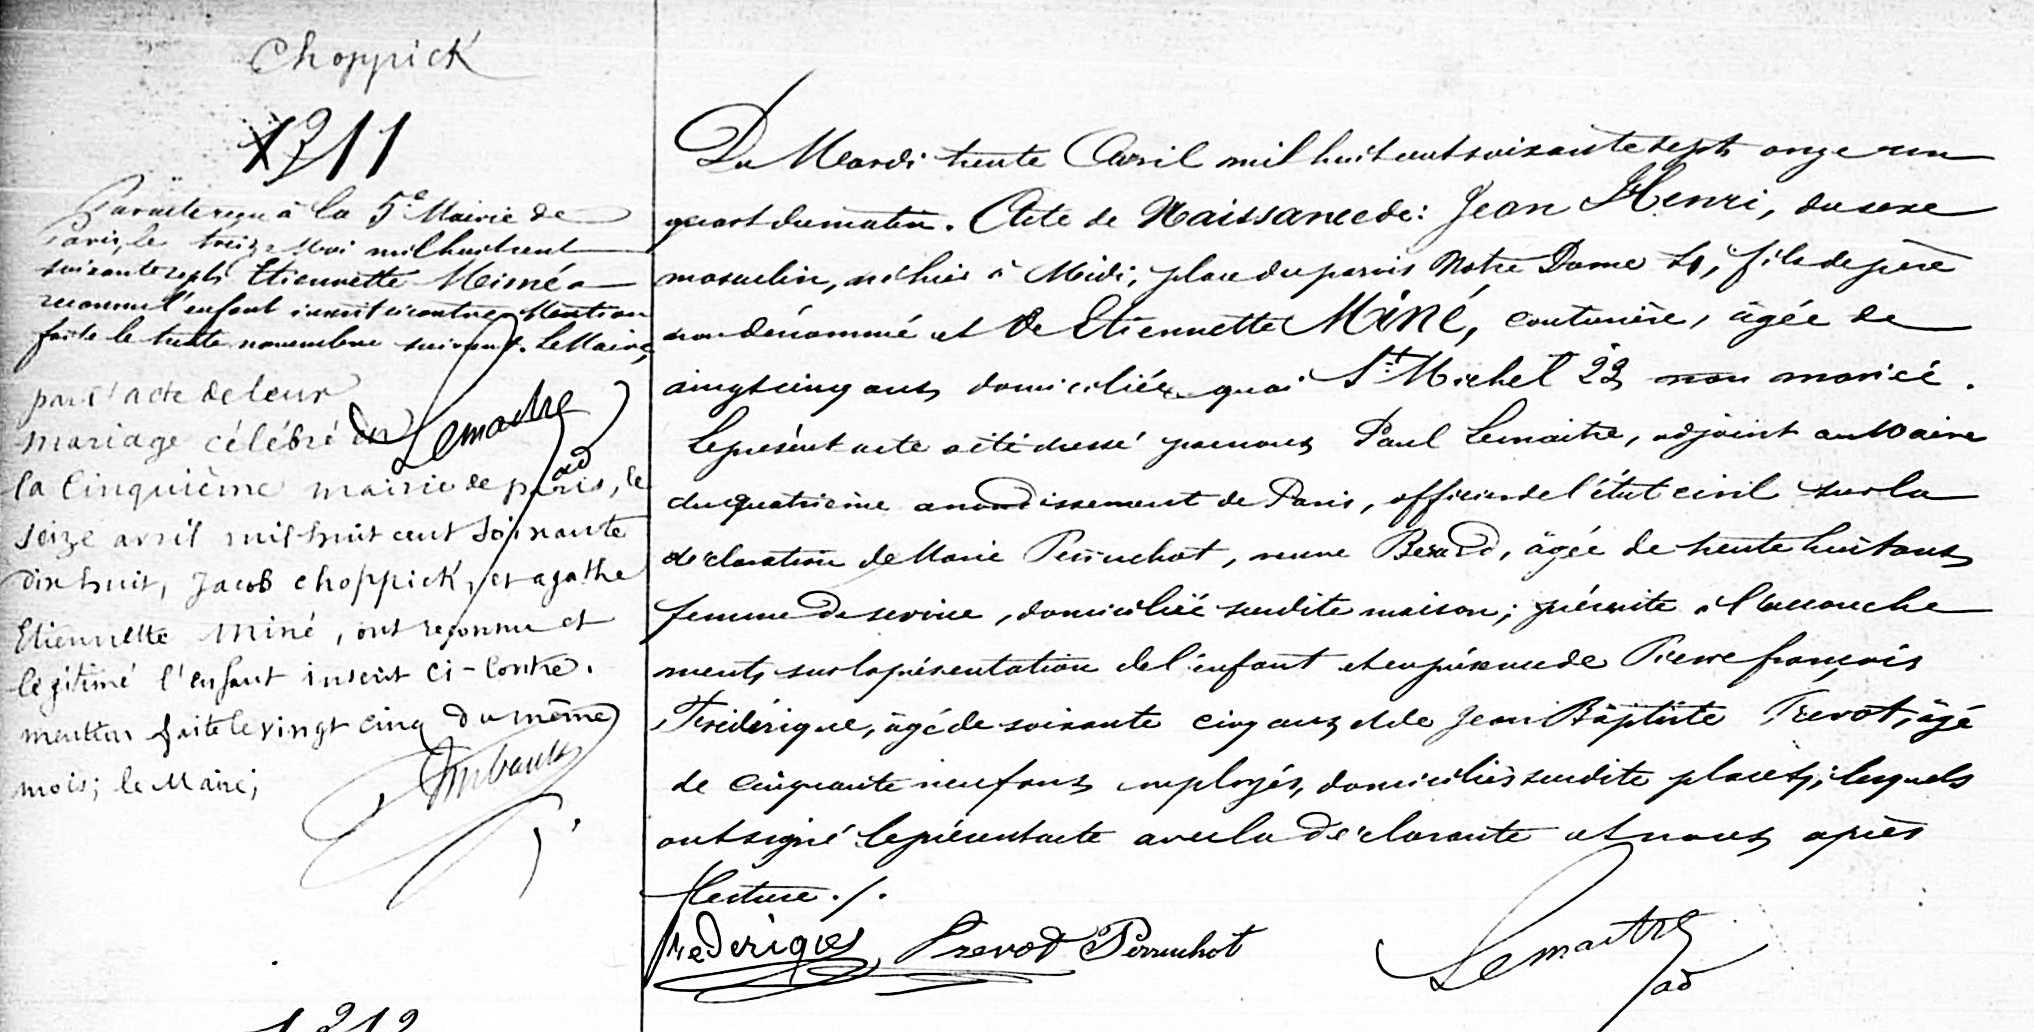 Choppick
1211
Par acte reçu à la 5e Mairie de
Paris, le treize Mai mil huit cent
soixante sept, Etiennette Miné a
reconnu l'enfant inscrit ci contre Mention
faite le trente novembre suivant. Le Maire,
Lemaitre
ad
par l'acte de leur
mariage célébré en
la Cinquième mairie de paris, le
seize avril mil huit cent soixante
dix huit, Jacob choppick, et agathe
Etiennette Miné, ont reconnu et
légitimé l'enfant inscrit ci-contre.
mention faite le vingt cinq du même
mois; le Maire;
Du Mardi trente Avril mil huit cent soixante sept onze un
quart du matin. Acte de Naissance de: Jean Henri, du sexe
masculin, né hier à Midi, place du parvis Notre Dame 4, fils de père
non dénommé et de Etiennette Miné, couturière, âgée de
vingt cinq ans domiciliée quai St Michel 23 non mariée.
Le présent acte a été dressé par nous Paul Lemaitre, adjoint au Maire
du quatrième arrondissement de Paris, officier de l'état civil sur la
déclaration de Marie Perruchot, veuve Berard, âgée de trente huit ans
femme de service, domiciliée susdite maison; présente à l'accouche
ment, sur la présentation de l'enfant et en présence de Pierre françois
Frédérique, âgé de soixante cinq ans et de Jean Baptiste Prevot, âgé
de cinquante neuf ans employés, domiciliés susdite place 4; lesquels
ont signé le présent acte avec la déclarante et nous après
lecture ./.
frederique Prevot Perruchot
Lemaitre
ad
1212